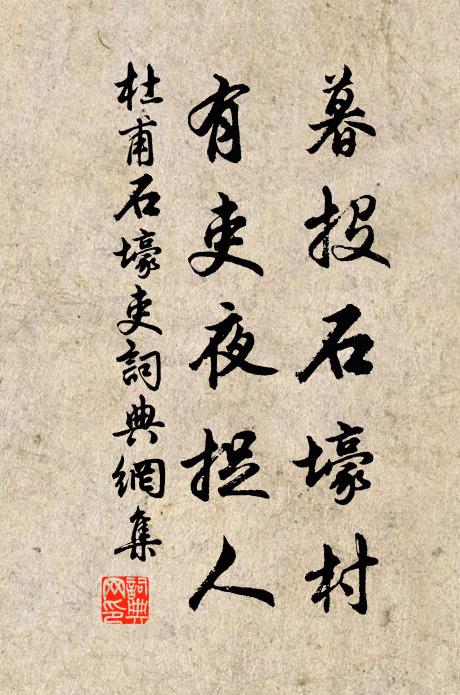 暮投石壕村
有吏夜捉人
杜甫石壕吏詞典網集
詞典
網印